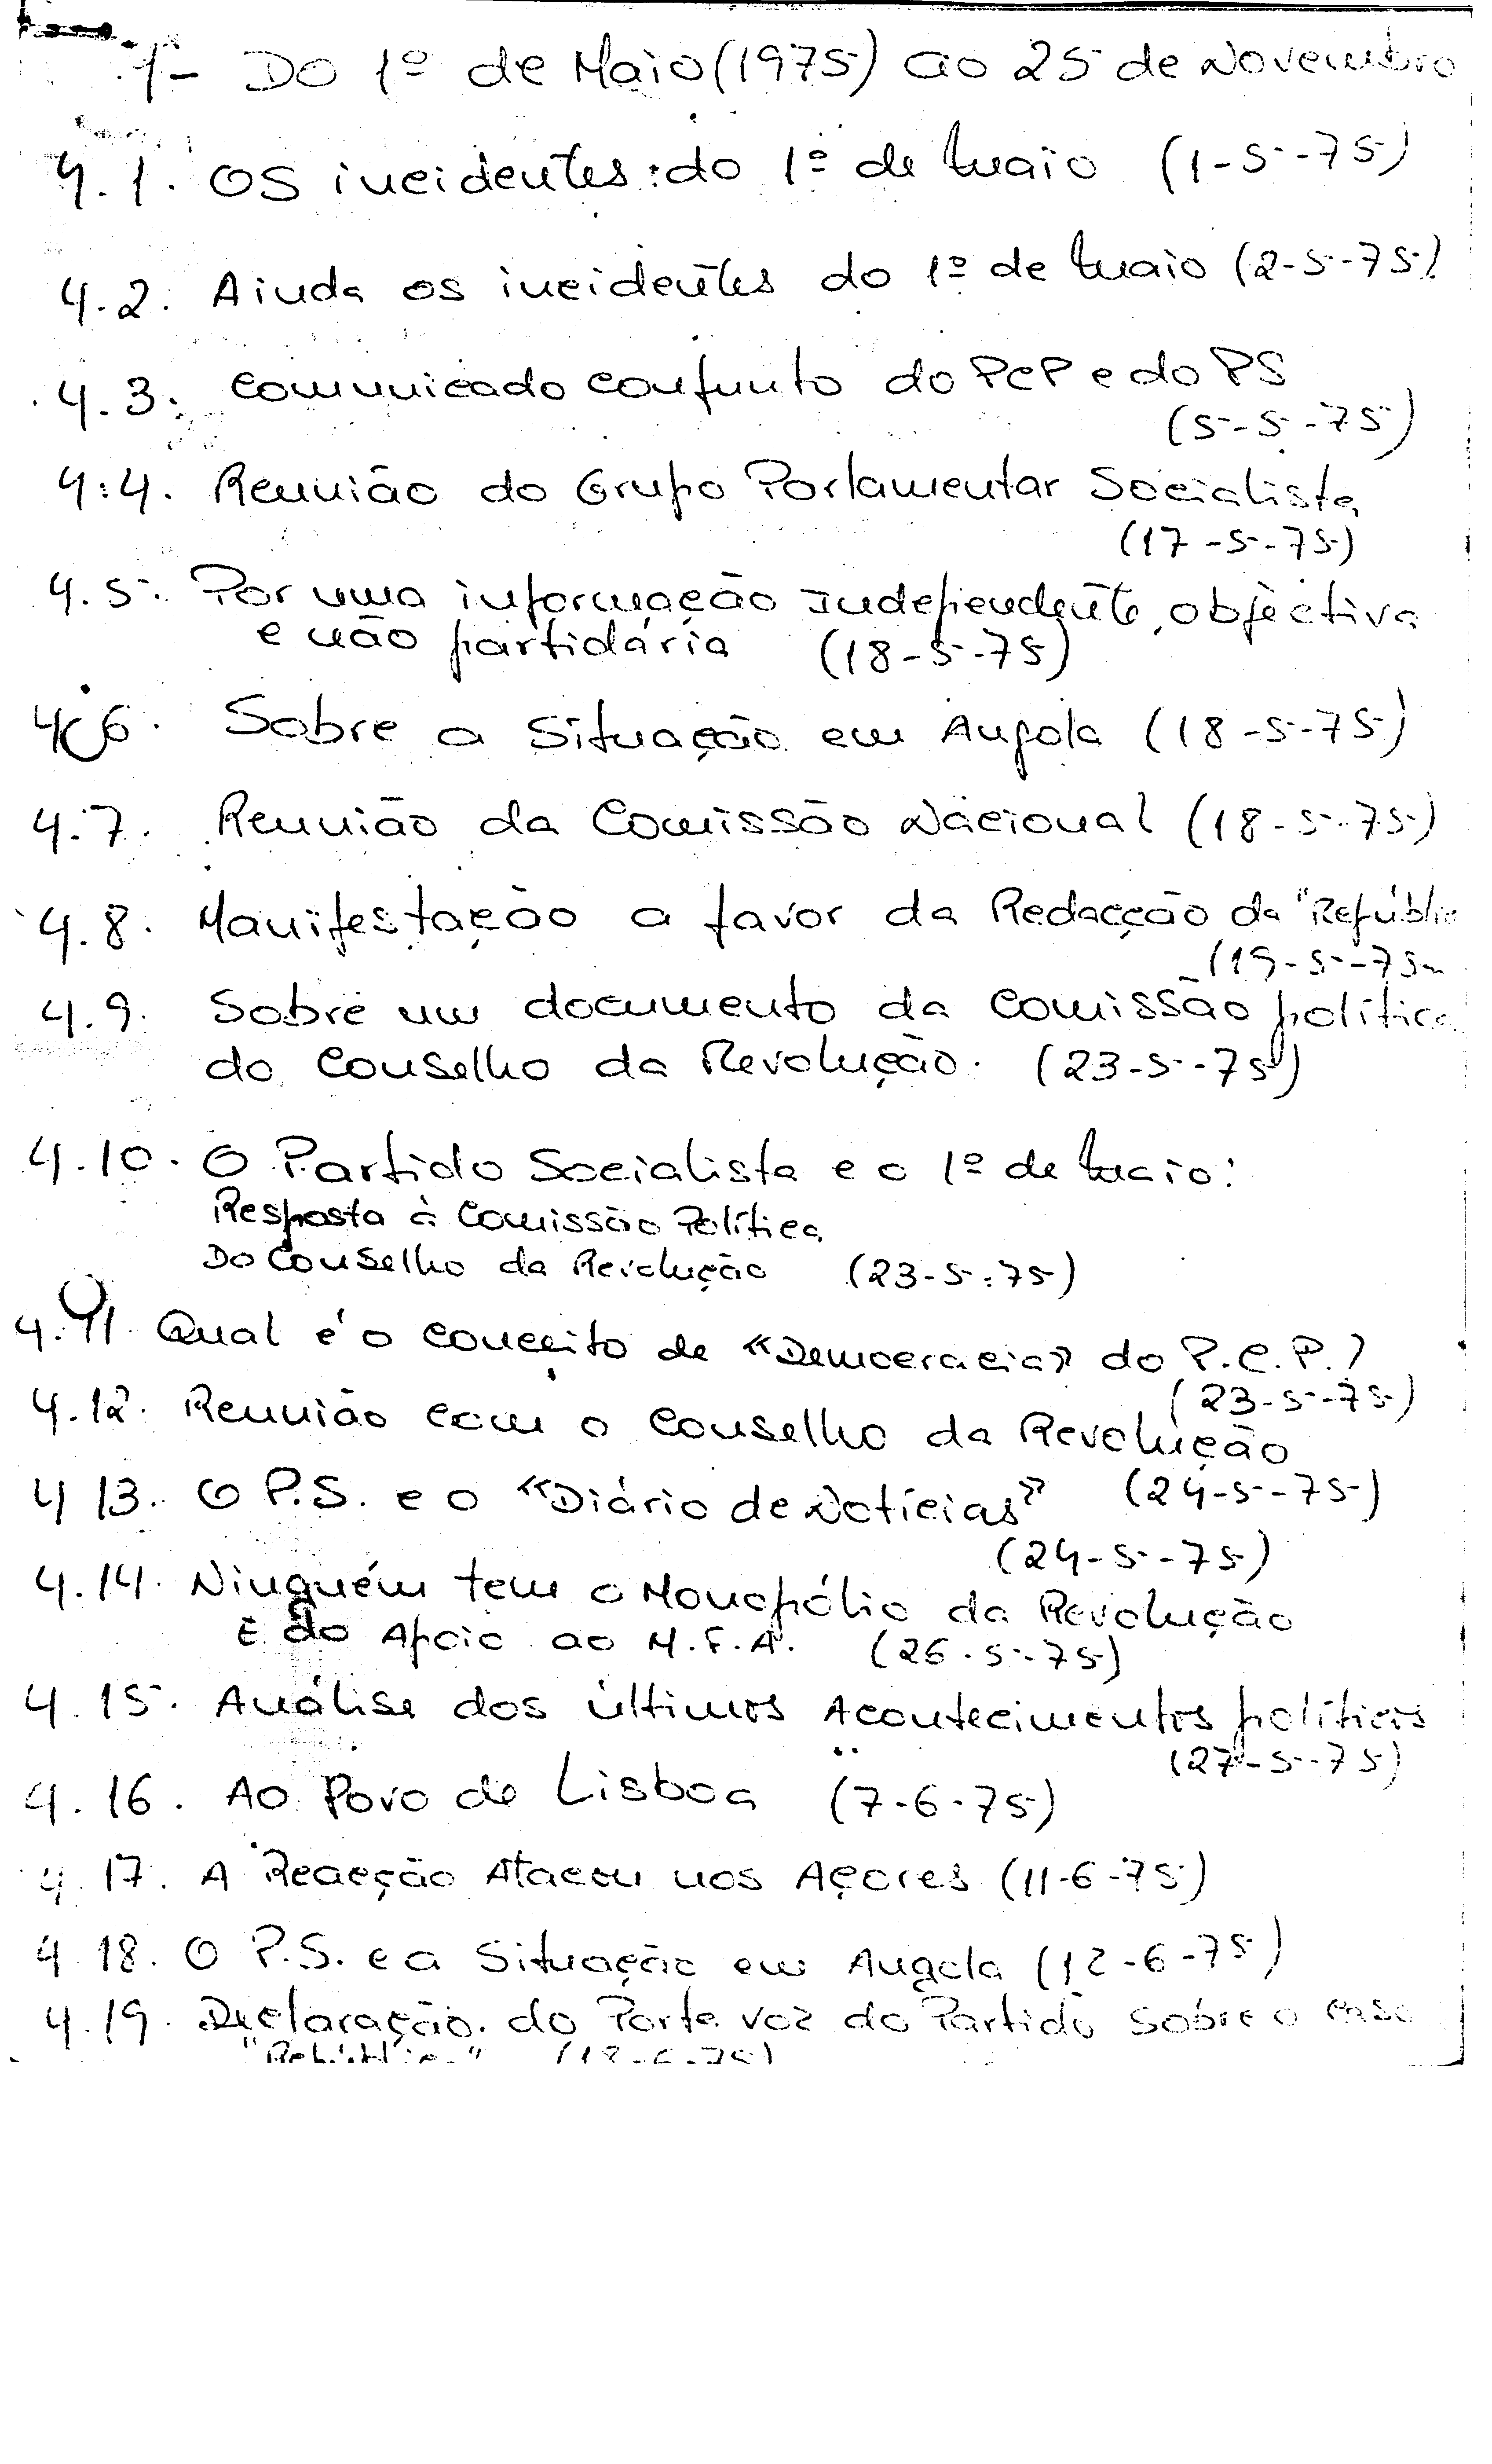 4- Do 1º de Maio (1975) ao 25 de Novembro
4.1. Os incidentes do 1º de maio (1-5-75)
4.2. Ainda os incidentes do 1º de maio (2-5-75)
4.3. Comunicado conjunto do PCP e do PS
(5-5-75)
4.4. Reunião do Grupo Parlamentar Socialista
(17-5-75)
4.5. Por uma informação Independente, objectiva
e não partidária (18-5-75)
4.6. Sobre a Situação em Angola (18-5-75)
4.7. Reunião da Comissão Nacional (18-5-75)
4.8. Manifestação a favor da Redacção da "Repúblic
(19-5-75
4.9. Sobre um documento da Comissão política
do Conselho da Revolução. (23-5-75)
4.10. O Partido Socialista e o 1º de maio:
Resposta à Comissão Política
Do Conselho da Revolução (23-5-75)
4.11 Qual é o conceito de «Democracia» do P.C.P.?
(23-5-75)
4.12. Reunião com o Conselho da Revolução
(24-5-75)
4.13. O P.S. e o «Diário de Notícias»
(24-5-75)
4.14. Ninguém tem o Monopólio da Revolução
E do Apoio ao M.F.A. (26-5-75)
4.15. Análise dos últimos Acontecimentos políticos
(27-5-75)
4.16. Ao Povo de Lisboa (7-6-75)
4.17. A Reacção Atacou nos Açores (11-6-75)
4.18. O P.S. e a Situação em Angola (12-6-75)
4.19. Declaração do Porta voz do Partido Sobre o caso
"República"